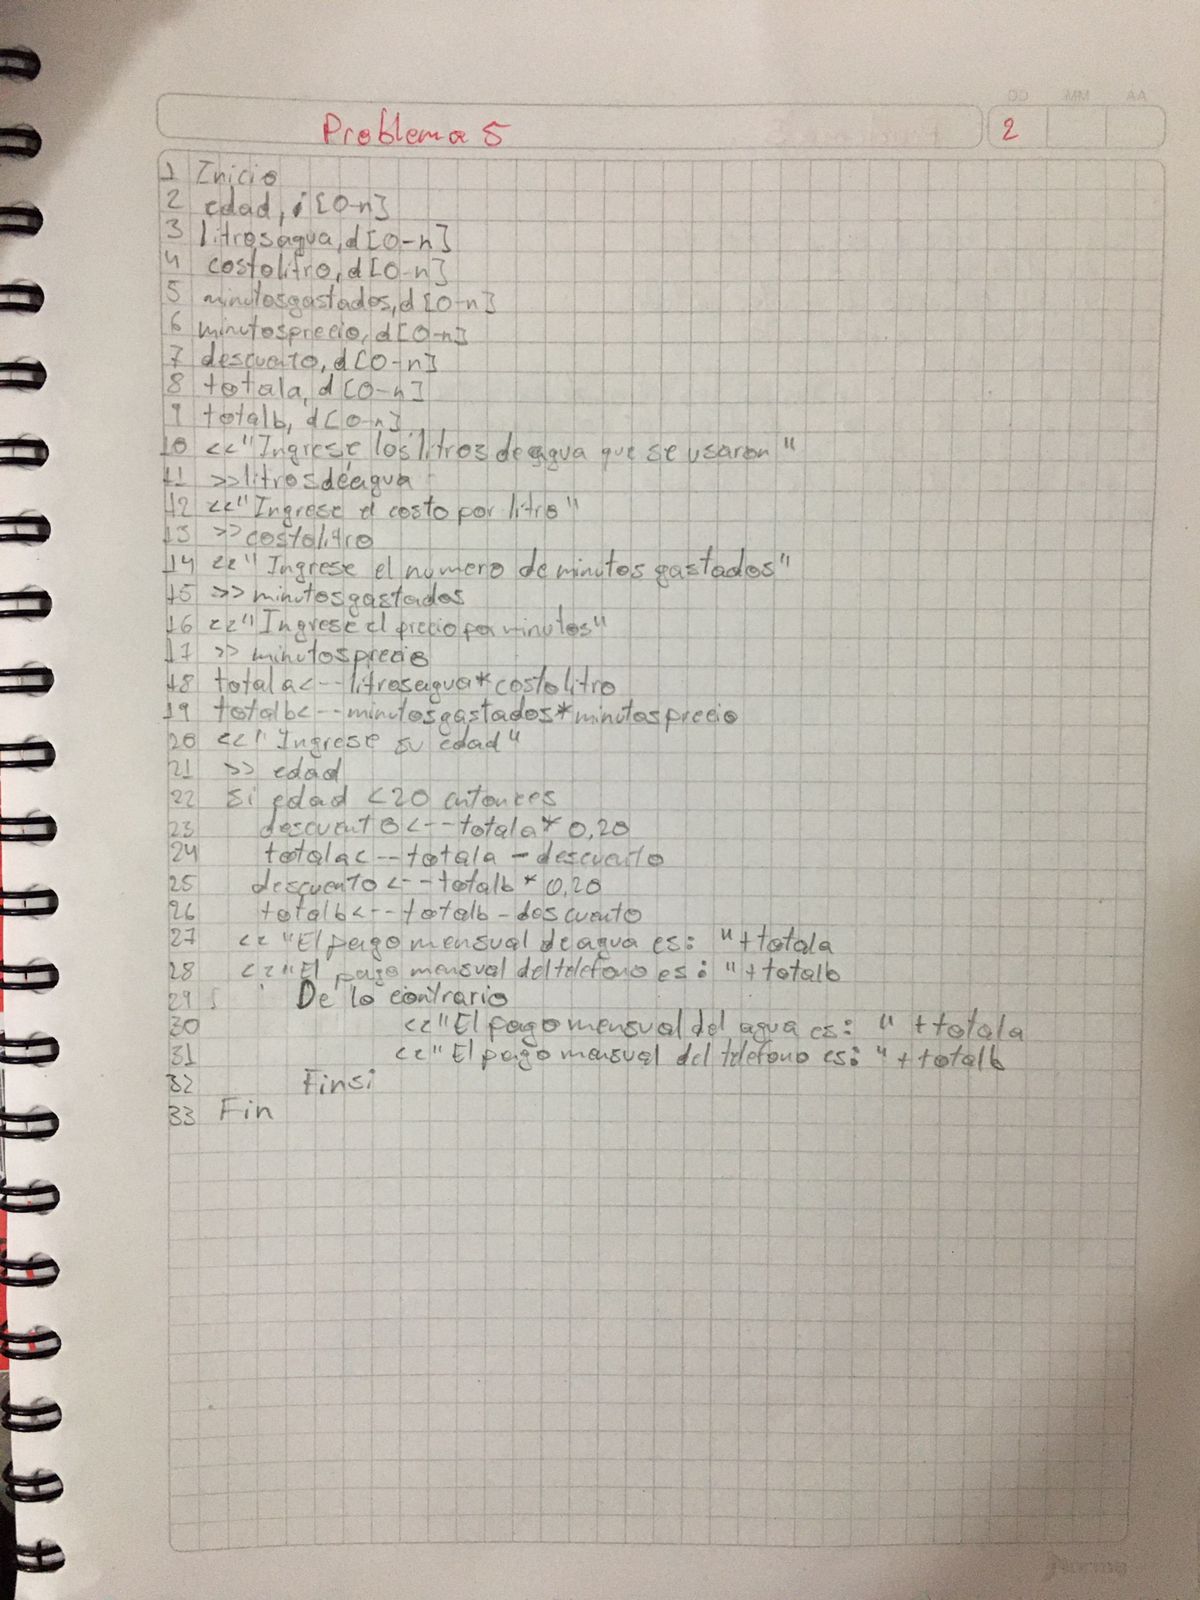 AA MM DD
Problema 5 2
1 Inicio
2 edad, i [0-n]
3 litrosagua, d [0-n]
4 costolitro, d [0-n]
5 minutosgastados, d [0-n]
6 minutosprecio, d [0-n]
7 descuento, d [0-n]
8 totala, d [0-n]
9 totalb, d [0-n]
10 <<"Ingrese los litros de agua que se usaron"
11 >>litrosdeagua
12 <<"Ingrese el costo por litro"
13 >>costolitro
14 <<"Ingrese el numero de minutos gastados"
15 >>minutosgastados
16 <<"Ingrese el precio por minutos"
17 >> minutosprecio
18 totala<--litrosagua*costolitro
19 totalb<--minutosgastados*minutosprecio
20 <<"Ingrese su edad"
21 >> edad
22 Si edad <20 entonces
23 descuento<--totala* 0,20
24 totala<--totala - descuento
25 descuento<--totalb * 0,20
26 totalb<--totalb - descuento
27 << "El pago mensual de agua es: "+totala
28 <<"El pago mensual del telefono es: "+totalb
29 De lo contrario
30 <<"El pago mensual del agua es: " +totala
31 <<"El pago mensual del telefono es: "+totalb
32 Finsi
33 Fin
norma